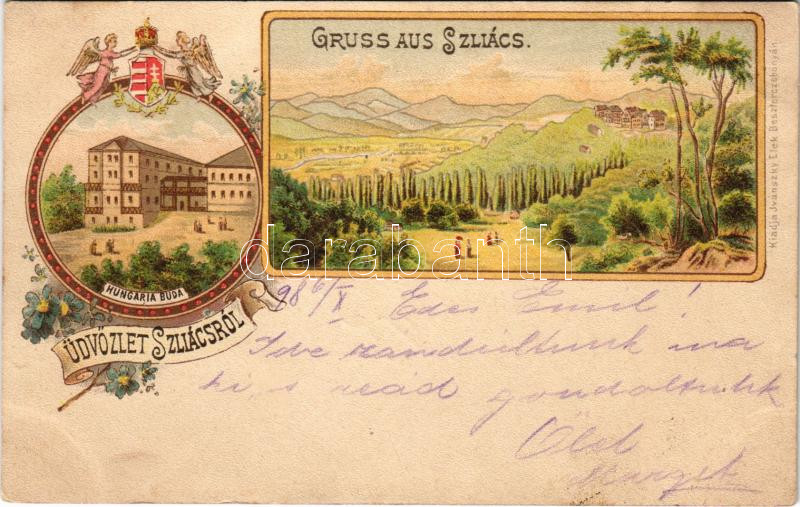 GRUSS AUS SZLIÁCS.
HUNGARIA BUDA
ÜDVÖZLET SZLIÁCSRÓL
Kiadja Ivánszky Elek Beszterczebányán
darabanth
98 6/X Edes Emil!
Ide rándultunk ma
ki, s reád gondoltunk
Ölel
Margit